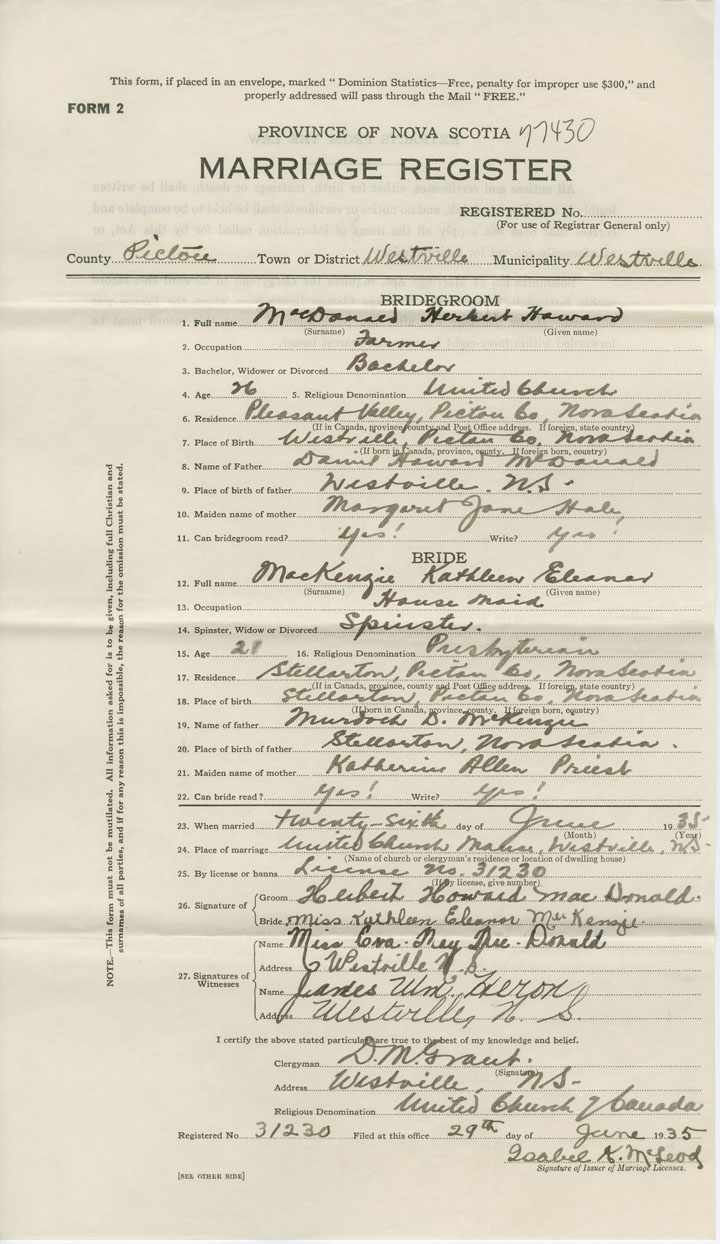 This form, if placed in an envelope, marked " Dominion Statistics—Free, penalty for improper use $300," and
properly addressed will pass through the Mail " FREE."
FORM 2
PROVINCE OF NOVA SCOTIA 77430
MARRIAGE REGISTER
REGISTERED No.
(For use of Registrar General only)
County Pictou Town or District Westville Municipality Westville
BRIDEGROOM
1. Full name MacDonald Herbert Howard
(Surname) (Given name)
2. Occupation Farmer
3. Bachelor, Widower or Divorced Bachelor
4. Age 26 5. Religious Denomination United Church
6. Residence Pleasant Valley, Pictou Co, Nova Scotia
(If in Canada, province, county and Post Office address. If foreign, state country)
7. Place of Birth Westville, Pictou Co, Nova Scotia
(If born in Canada, province, county. If foreign born, country)
8. Name of Father Daniel Howard McDonald
9. Place of birth of father Westville. N.S.
10. Maiden name of mother Margaret Jane Hale,
11. Can bridegroom read? Yes! Write? Yes!
BRIDE
12. Full name MacKenzie Kathleen Eleanor
(Surname) (Given name)
13. Occupation House maid
14. Spinster, Widow or Divorced Spinster.
15. Age 21 16. Religious Denomination Presbyterian
17. Residence Stellarton, Pictou Co, Nova Scotia
(If in Canada, province, county and Post Office address. If foreign, state country)
18. Place of birth Stellarton, Pictou Co, Nova Scotia
(If born in Canada, province, county. If foreign born, country)
19. Name of father Murdoch D. McKenzie
20. Place of birth of father Stellarton, Nova Scotia.
21. Maiden name of mother Katherine Allen Priest
22. Can bride read? Yes! Write? Yes!
23. When married twenty-sixth day of June 1935
(Month) (Year)
24. Place of marriage United Church Manse, Westville, N.S.
(Name of church or clergyman's residence or location of dwelling house)
25. By license or banns License No. 31230
(If by license, give number)
26. Signature of Groom Herbert Howard mac Donald.
Bride Miss Kathleen Eleanor MacKenzie.
27. Signatures of Witnesses
Name Miss Eva May Mc Donald
Address Westville N.S.
Name James Wm. Heron
Address Westville, N. S.
I certify the above stated particulars are true to the best of my knowledge and belief.
Clergyman D. M. Grant.
(Signature)
Address Westville, N.S.
Religious Denomination United Church of Canada
Registered No. 31230 Filed at this office 29th day of June 1935
Isabel K. McLeod
Signature of Issuer of Marriage Licenses.
[SEE OTHER SIDE]
NOTE.—This form must not be mutilated. All information asked for is to be given, including full Christian and
surnames of all parties, and if for any reason this is impossible, the reason for the omission must be stated.